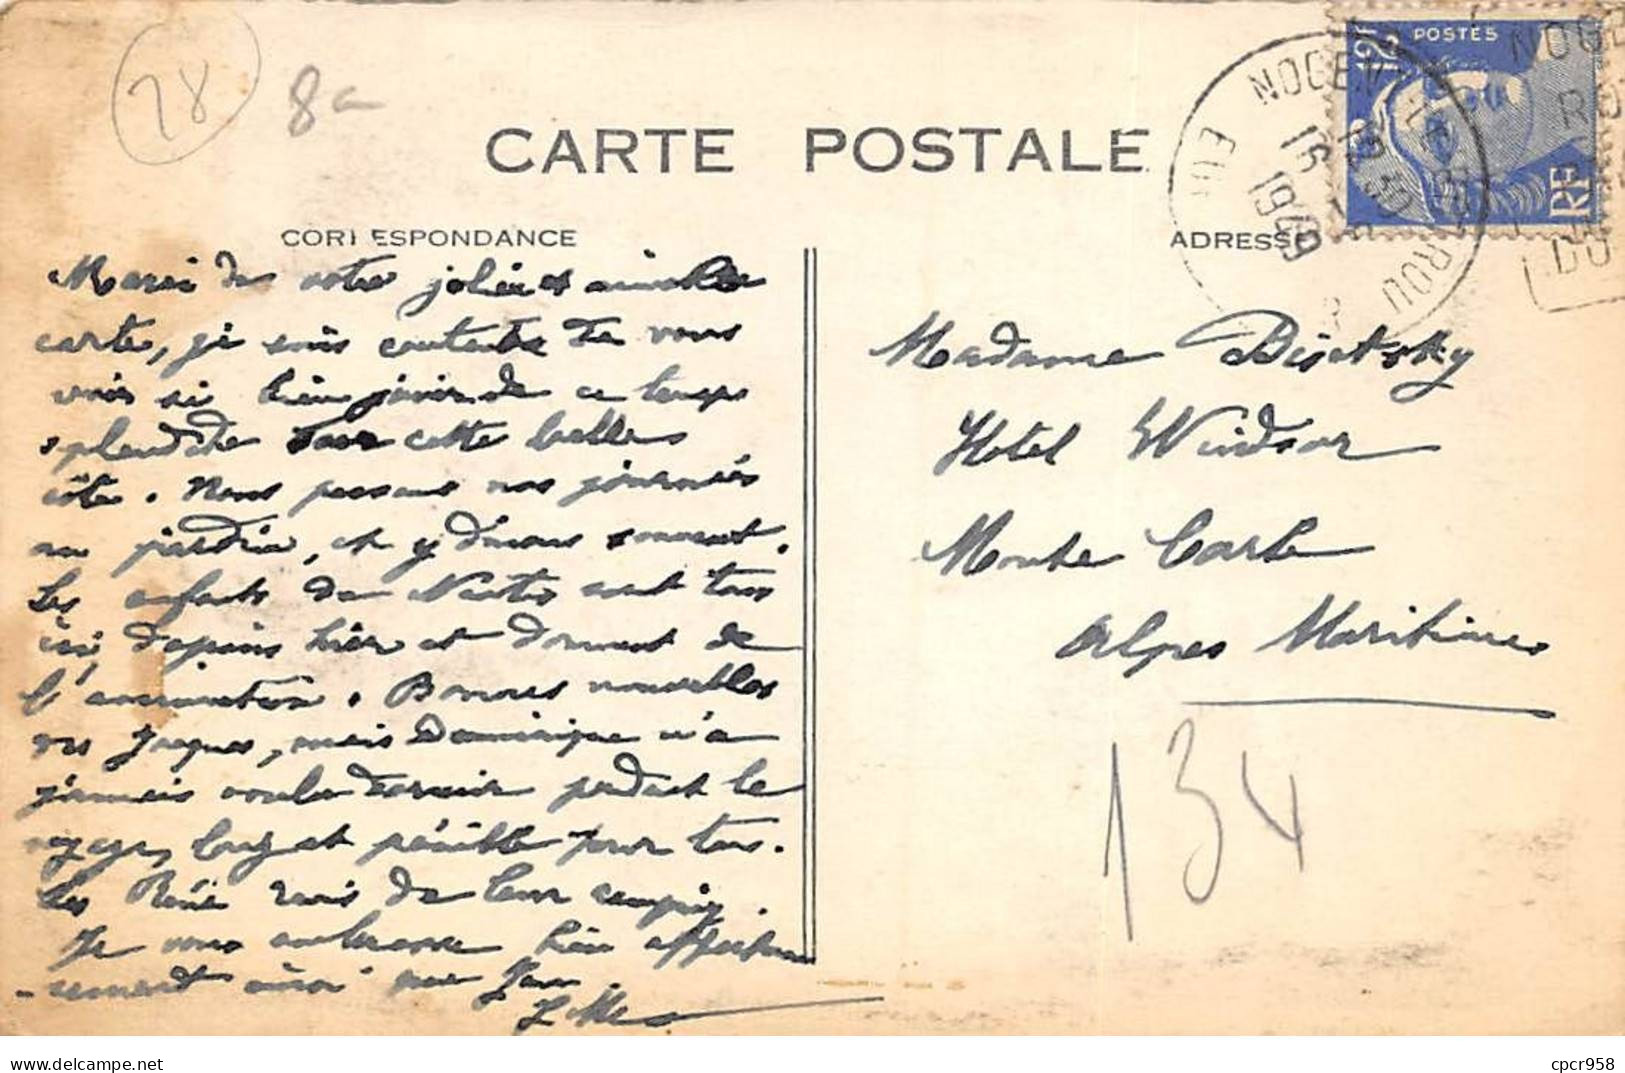 28
8
CARTE POSTALE
CORRESPONDANCE
ADRESSE
POSTES
12F
RF
NOGENT LE ROTROU
16
1949
EUR
NOGE
RO
DU
Merci de votre jolie et aimable
carte, je suis contente de vous
voir si bien jouir de ce temps
splendide sur cette belle
côte. Nous passons nos journées
au jardin, et y dînons souvent.
Les enfants de Nantes sont tous
ici depuis hier et donnent de
l'animation. Bonnes nouvelles
des Jacques, mais Dominique n'a
jamais voulu dormir pendant le
voyage, long et pénible pour tous.
Les René ravis de leur camping.
Je vous embrasse bien affectueu
-sement ainsi que
Madame Bisetsky
Hotel Windsor
Monte Carlo
Alpes Maritimes
134
delcampe.net
cpcr958